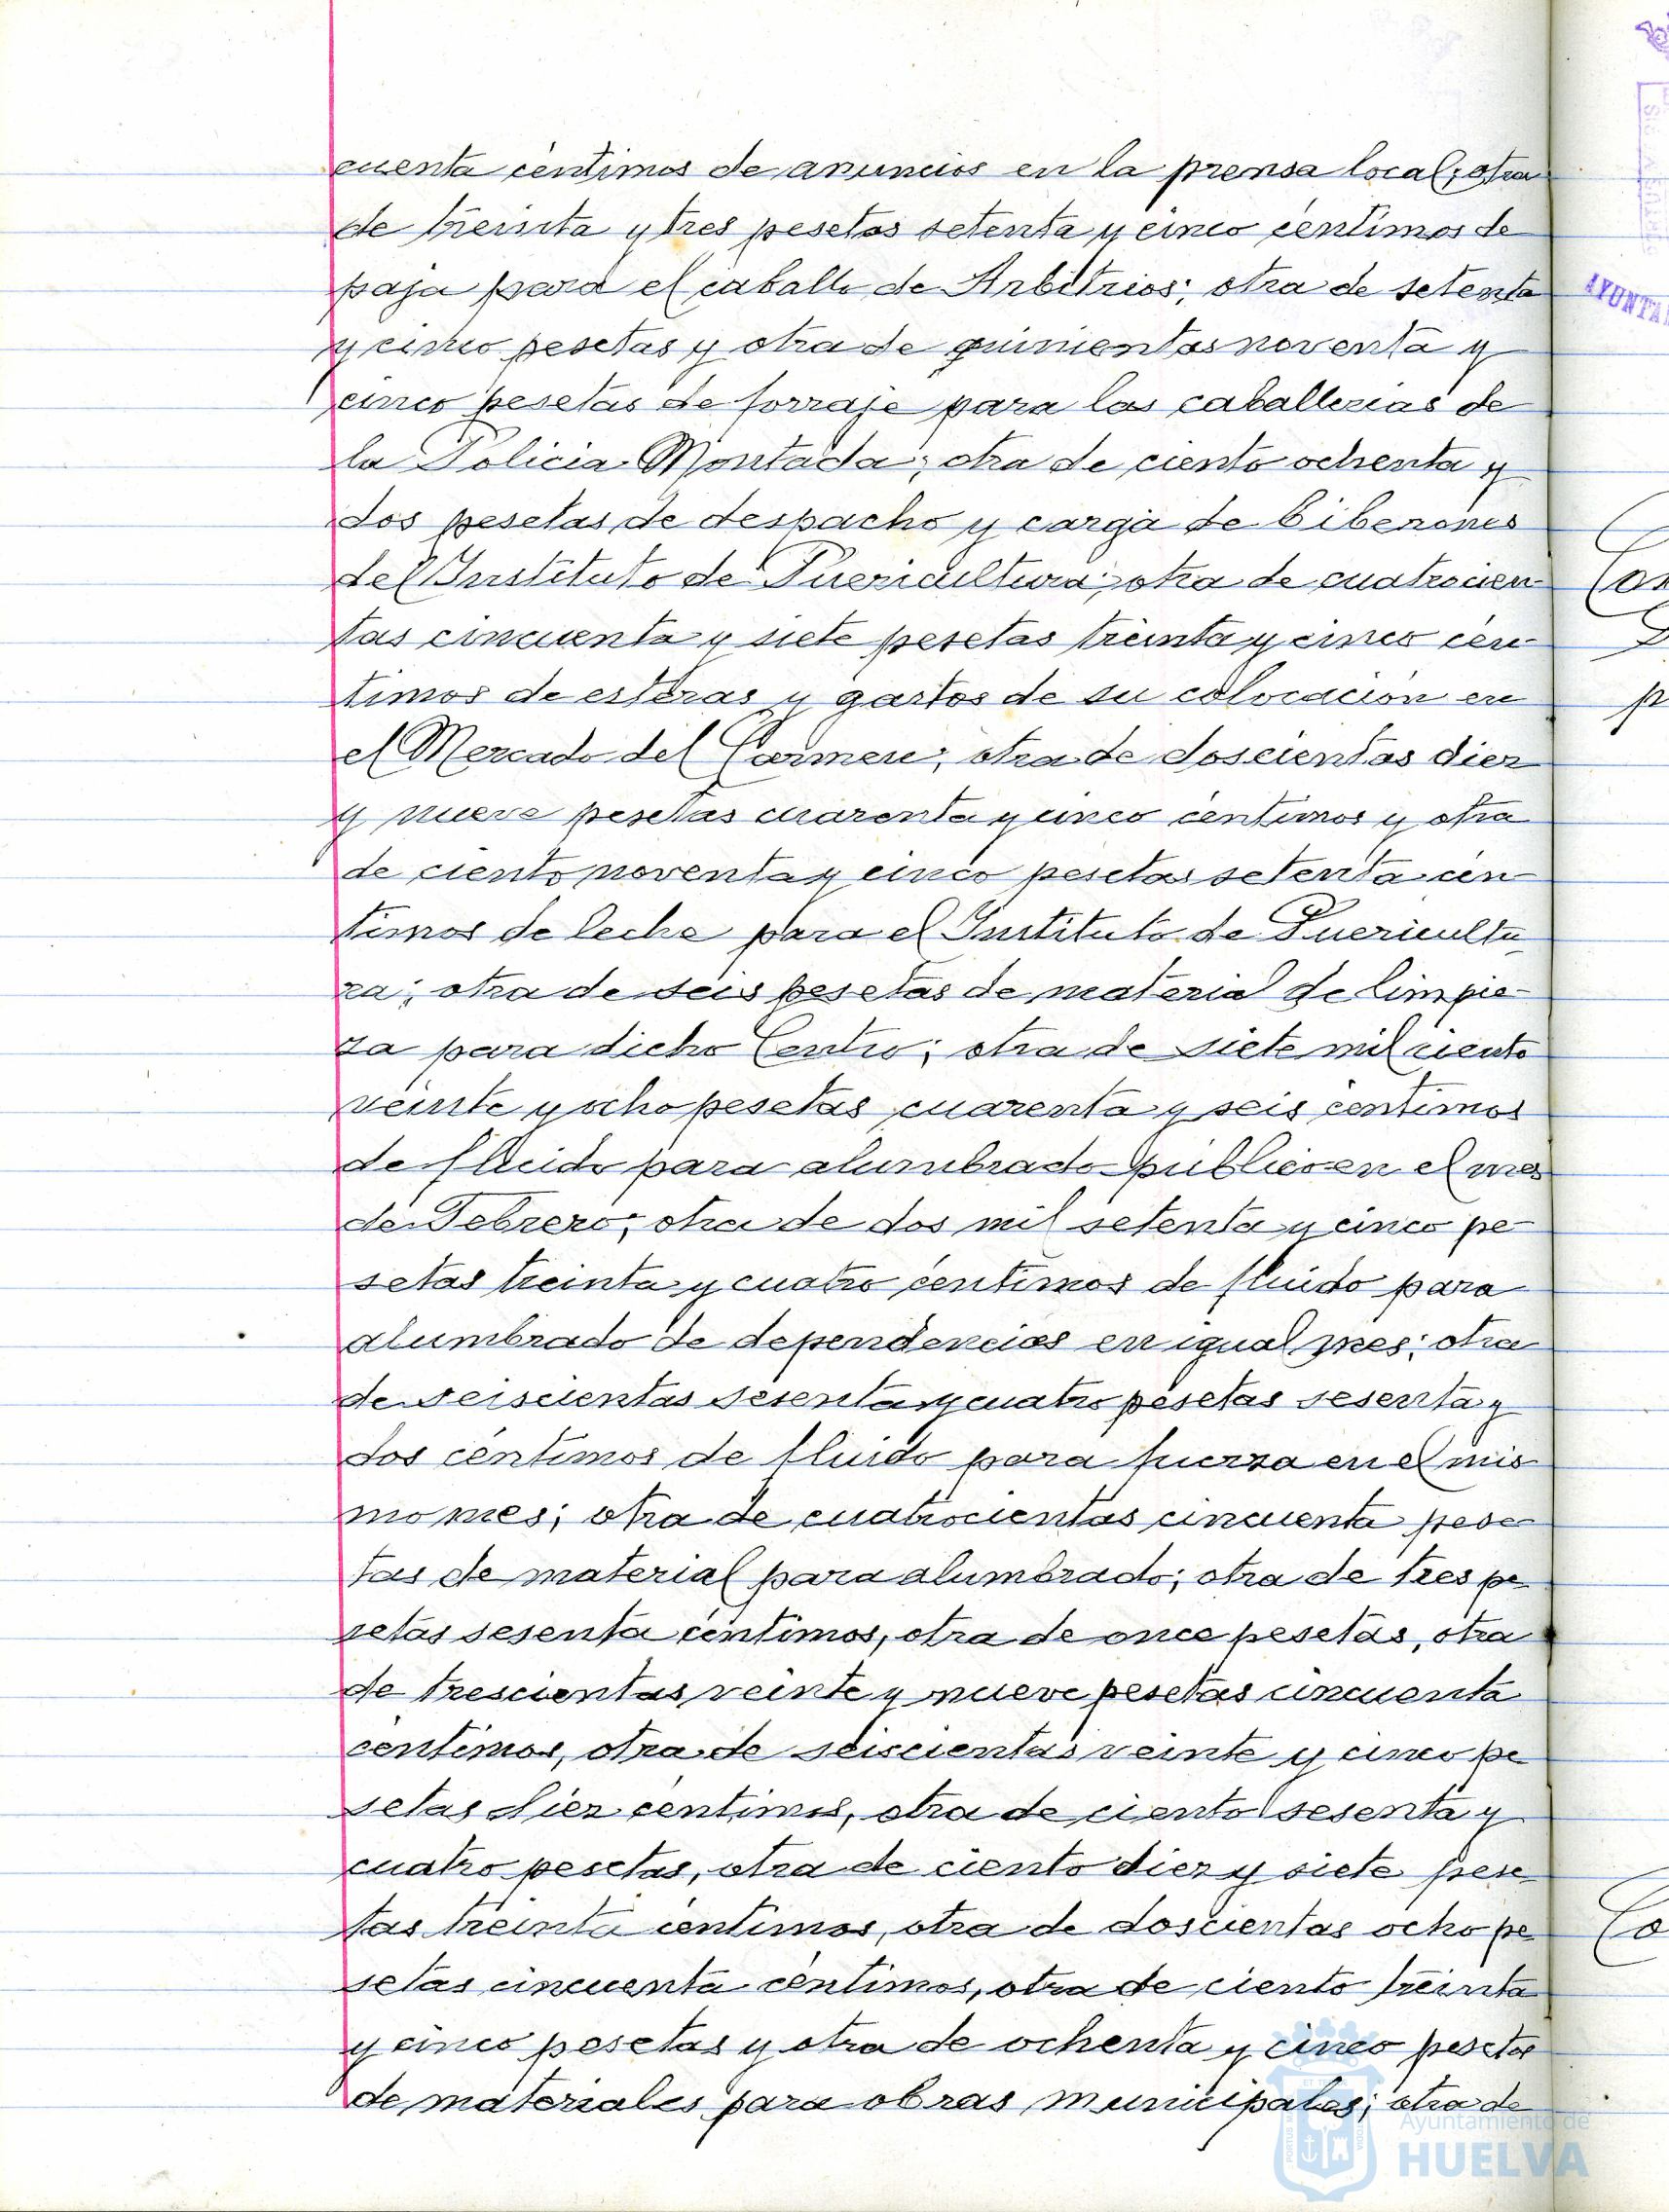 cuenta céntimos de anuncios en la prensa local; otra
de treinta y tres pesetas setenta y cinco céntimos de
paja para el caballo de Arbitrios; otra de setenta
y cinco pesetas y otra de quinientas noventa y
cinco pesetas de forraje para las caballerias de
la Policia Montada; otra de ciento ochenta y
dos pesetas de despacho y carga de biberones
del Instituto de Puericultura; otra de cuatrocien-
tas cincuenta y siete pesetas treinta y cinco cén-
timos de esteras y gastos de su colocación en
el Mercado del Carmen; otra de doscientas diez
y nueve pesetas cuarenta y cinco céntimos y otra
de ciento noventa y cinco pesetas setenta cén-
timos de leche para el Instituto de Puericultu-
ra; otra de seis pesetas de material de limpie-
za para dicho Centro; otra de siete mil ciento
veinte y ocho pesetas cuarenta y seis céntimos
de fluido para alumbrado público en el mes
de Febrero; otra de dos mil setenta y cinco pe-
setas treinta y cuatro céntimos de fluido para
alumbrado de dependencias en igual mes; otra
de seiscientas sesenta y cuatro pesetas sesenta y
dos céntimos de fluido para fuerza en el mis-
mo mes; otra de cuatrocientas cincuenta pese-
tas de material para alumbrado; otra de tres pe-
setas sesenta céntimos, otra de once pesetas, otra
de trescientas veinte y nueve pesetas cincuenta
céntimos, otra de seiscientas veinte y cinco pe-
setas diez céntimos, otra de ciento sesenta y
cuatro pesetas, otra de ciento diez y siete pese-
tas treinta céntimos, otra de doscientas ocho pe-
setas cincuenta céntimos, otra de ciento treinta
y cinco pesetas y otra de ochenta y cinco pesetas
de materiales para obras municipales; otra de
Ayuntamiento de
HUELVA